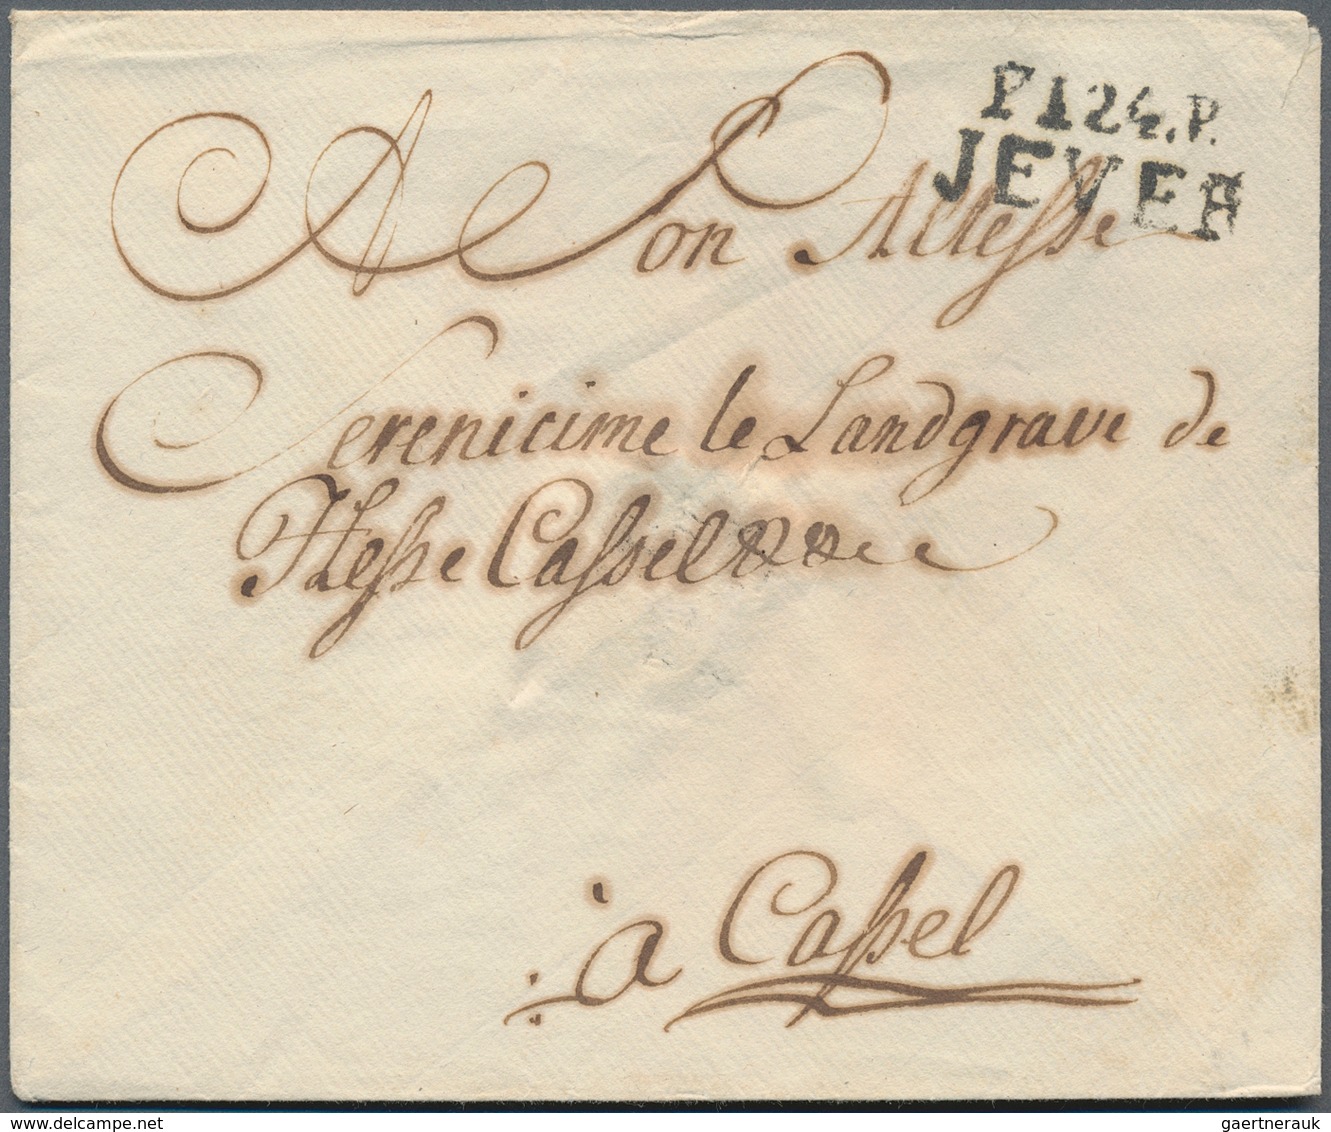 P124.P.
JEVER
A Son Altesse
Serenicime le Landgrave de
Hesse Cassel &c &c &c
à Cassel
gaertnerauk
www.delcampe.net